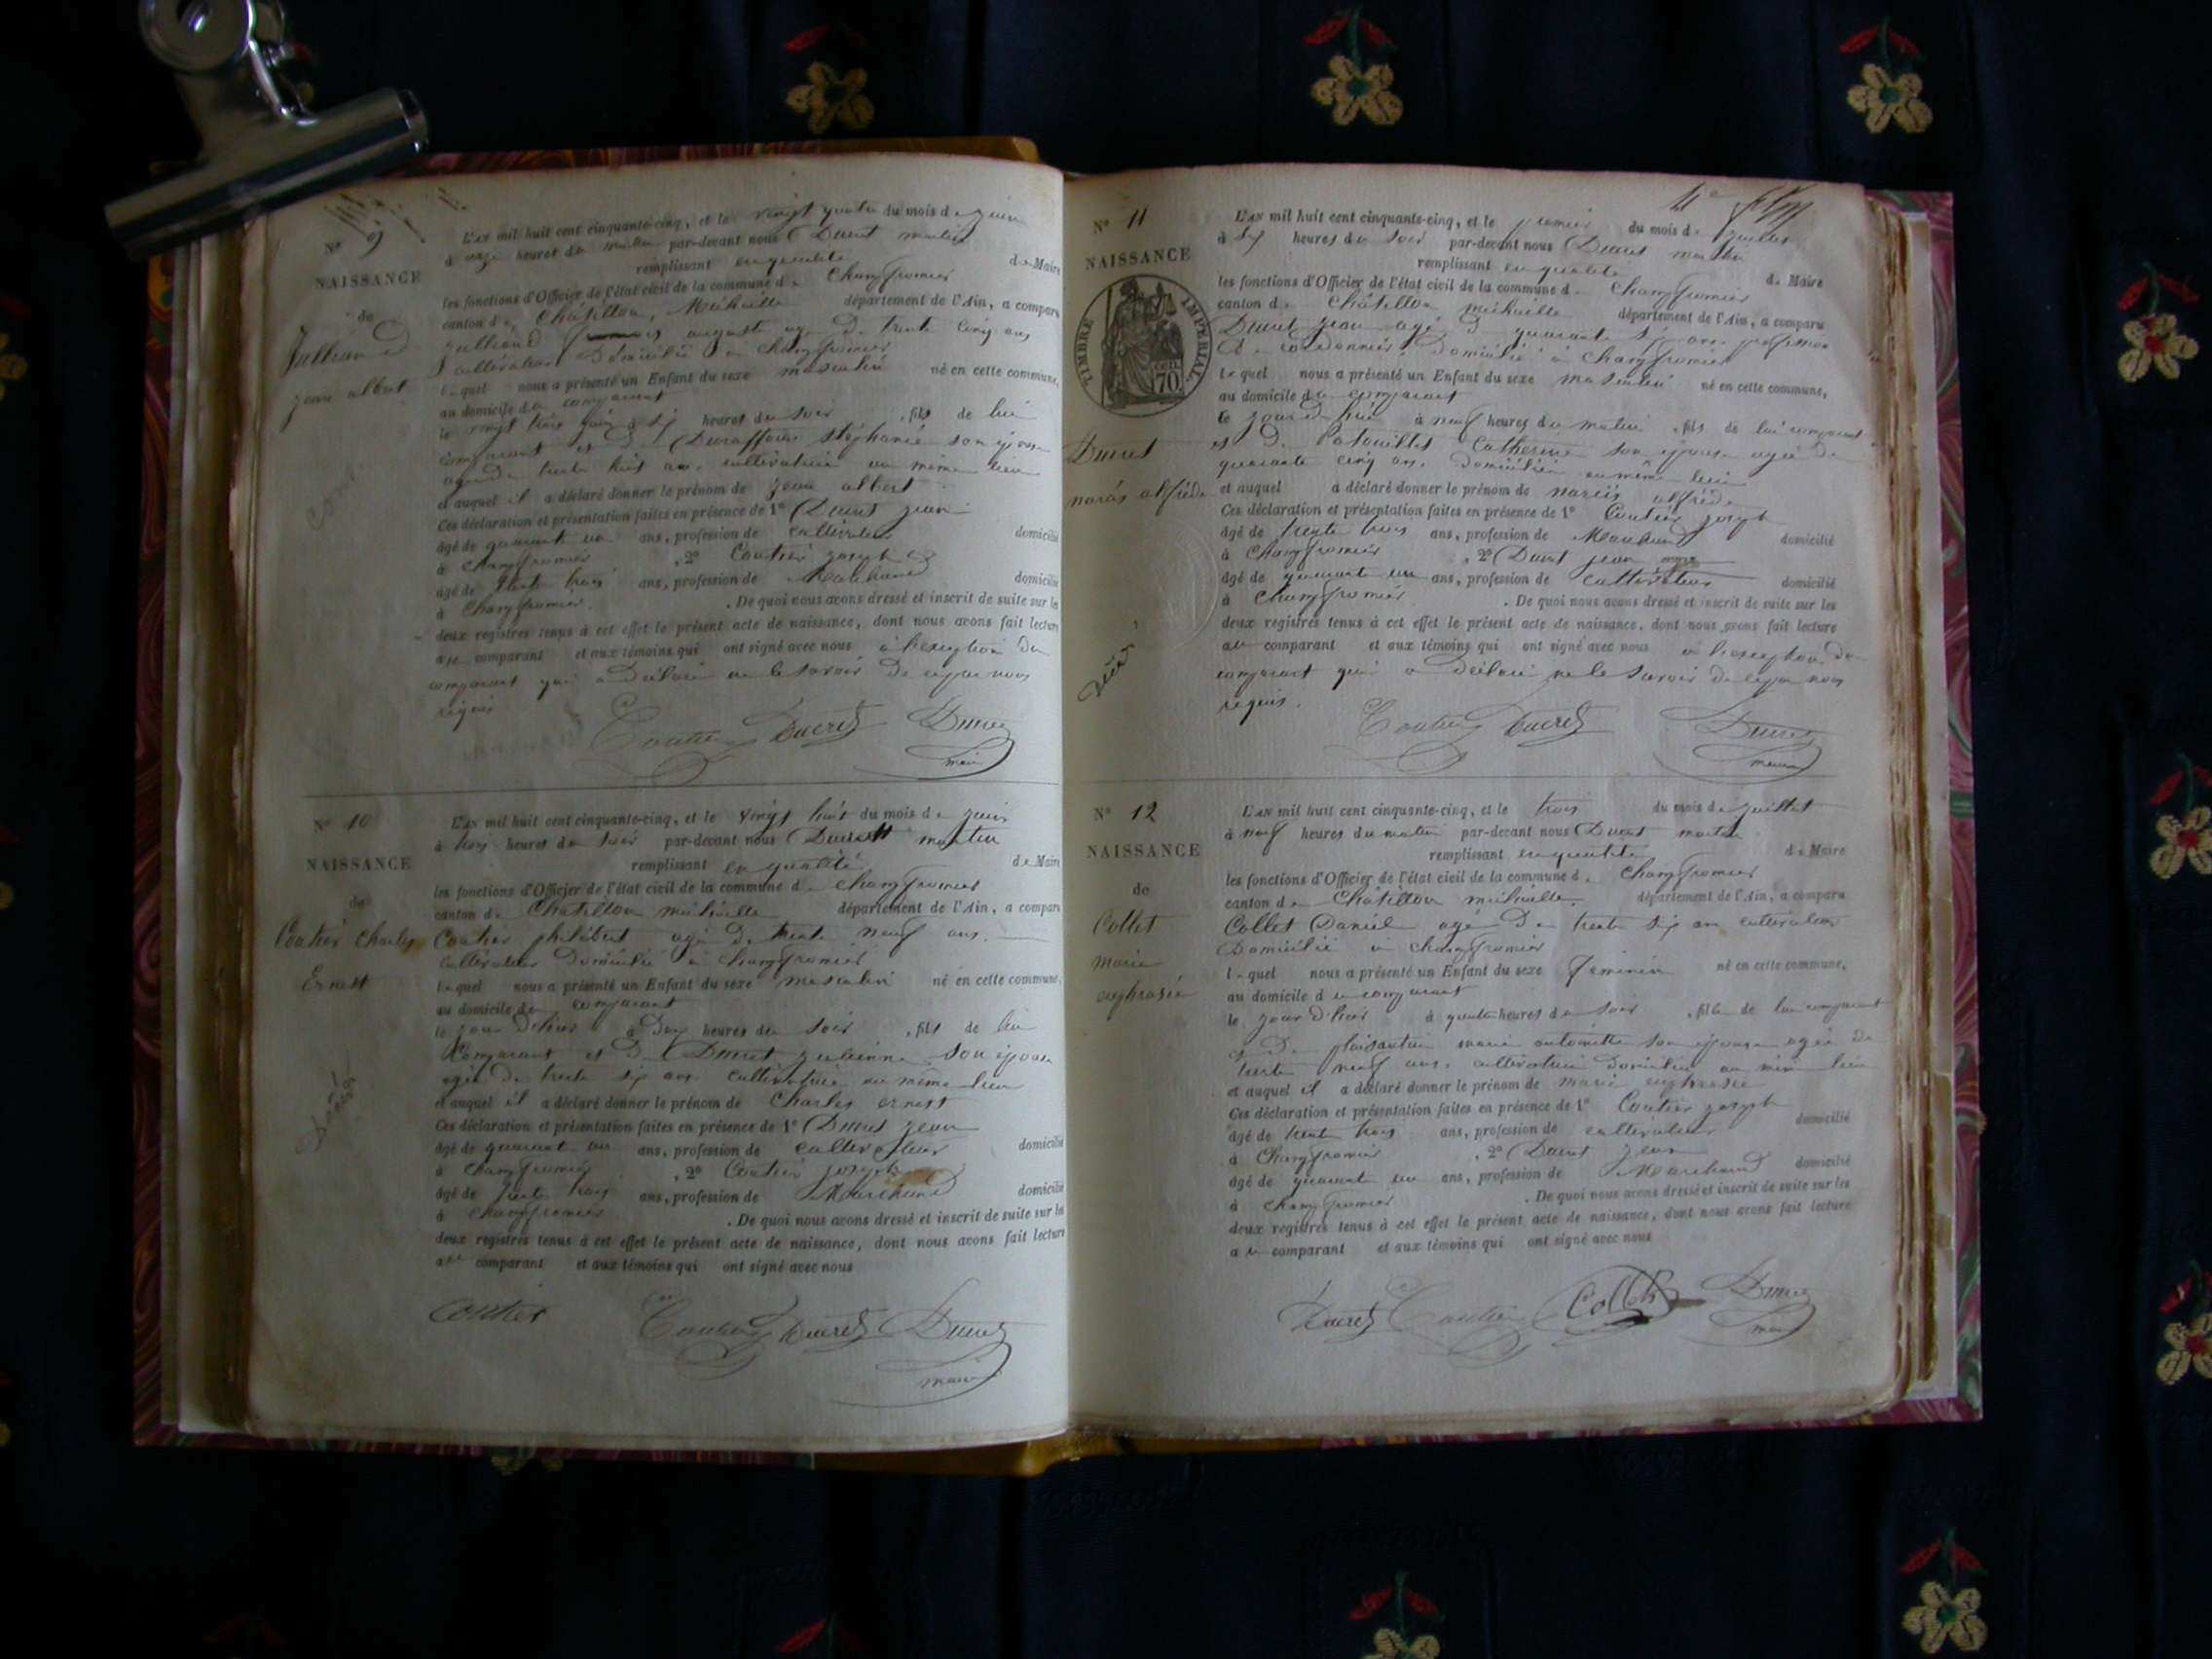 N° 9
NAISSANCE
de
Julliand
jean albert
L'AN mil huit cent cinquante-cinq, et le vingt quatre du mois de juin
à onze heures du matin par-devant nous Ducret martin
remplissant en qualité de Maire
les fonctions d'Officier de l'état civil de la commune de Champfromier
canton de Châtillon Michaille département de l'Ain, a comparu
julliand françois auguste agé de trente cinq ans
cultivateur Domicilié à Champfromier
lequel nous a présenté un Enfant du sexe masculin né en cette commune,
au domicile du comparant
le vingt trois juin à six heures du soir , fils de lui
comparant et de Duraffour stéphanie son épouse
agée de trente huit ans cultivatrice au même lieu
et auquel il a déclaré donner le prénom de jean albert
Ces déclaration et présentation faites en présence de 1° Ducret jean
âgé de quarant un ans, profession de cultivateur domicilié
à Champfromier , 2° Coutier joseph
âgé de trente trois ans, profession de Marchand domicilié
à Champfromier . De quoi nous avons dressé et inscrit de suite sur les
deux registres tenus à cet effet le présent acte de naissance, dont nous avons fait lecture
au comparant et aux témoins qui ont signé avec nous à l'exception du
comparant qui a Déclaré ne le savoir de ce par nous
requis
Coutier Ducret Ducret
maire
N° 10
NAISSANCE
de
Coutier Charles
Ernest
Décédé
L'AN mil huit cent cinquante-cinq, et le vingt huit du mois de juin
à trois heures du soir par-devant nous Ducret martin
remplissant en qualité de Maire
les fonctions d'Officier de l'état civil de la commune de Champfromier
canton de Chatillon michaille département de l'Ain, a comparu
Coutier philibert agé de trente neuf ans
cultivateur Domicilié à Champfromier
lequel nous a présenté un Enfant du sexe masculin né en cette commune,
au domicile du comparant
le jour d'hier à Dix heures du soir , fils de lui
Comparant et de Ducret julienne son épouse
agée de trente six ans cultivatrice au même lieu
et auquel il a déclaré donner le prénom de Charles ernest
Ces déclaration et présentation faites en présence de 1° Ducret jean
âgé de quarant un ans, profession de cultivateur domicilié
à Champfromier , 2° Coutier joseph
âgé de trente trois ans, profession de Marchand domicilié
à Champfromier . De quoi nous avons dressé et inscrit de suite sur les
deux registres tenus à cet effet le présent acte de naissance, dont nous avons fait lecture
au comparant et aux témoins qui ont signé avec nous
Coutier Coutier Ducret Ducret
maire
N° 11
NAISSANCE
TIMBRE IMPERIAL
70
Ducret
narcis alfréde
Décédé
L'AN mil huit cent cinquante-cinq, et le premier du mois de juillet
à six heures du soir par-devant nous Ducret martin
remplissant en qualité de Maire
les fonctions d'Officier de l'état civil de la commune de Champfromier
canton de Châtillon michaille département de l'Ain, a comparu
Ducret jean agé de quarante six ans profession
de cordonnier Domicilié à Champfromier
lequel nous a présenté un Enfant du sexe masculin né en cette commune,
au domicile du comparant
le jourd'hui à neuf heures du matin , fils de lui comparant
et de Catherine son épouse agée de
quarante cinq ans Domiciliée au même lieu
et auquel a déclaré donner le prénom de narcis alfréde
Ces déclaration et présentation faites en présence de 1° Coutier joseph
âgé de trente trois ans, profession de Marchand domicilié
à Champfromier , 2° Ducret jean
âgé de quarante un ans, profession de cultivateur domicilié
à Champfromier . De quoi nous avons dressé et inscrit de suite sur les
deux registres tenus à cet effet le présent acte de naissance, dont nous avons fait lecture
au comparant et aux témoins qui ont signé avec nous à l'exception du
comparant qui a Déclaré ne le savoir de ce par nous
requis.
Coutier Ducret Ducret
maire
N° 12
NAISSANCE
de
Collet
marie
euphrasie
L'AN mil huit cent cinquante-cinq, et le trois du mois de juillet
à neuf heures du matin par-devant nous Ducret martin
remplissant en qualité de Maire
les fonctions d'Officier de l'état civil de la commune de Champfromier
canton de Châtillon michaille département de l'Ain, a comparu
Collet Daniel agé De trente six ans cultivateur
Domicilié à Champfromier
lequel nous a présenté un Enfant du sexe feminin né en cette commune,
au domicile du comparant
le jour d'hier à quatre heures du soir , fille de lui comparant
et De marie antoinette son épouse agée de
trente neuf ans cultivatrice Domiciliée au même lieu
et auquel il a déclaré donner le prénom de marie euphrasie
Ces déclaration et présentation faites en présence de 1° Coutier joseph
âgé de trente trois ans, profession de cultivateur domicilié
à Champfromier , 2° Ducret jean
âgé de quarant un ans, profession de Marchand domicilié
à Champfromier . De quoi nous avons dressé et inscrit de suite sur les
deux registres tenus à cet effet le présent acte de naissance, dont nous avons fait lecture
au comparant et aux témoins qui ont signé avec nous
Ducret Coutier Collet Ducret
maire